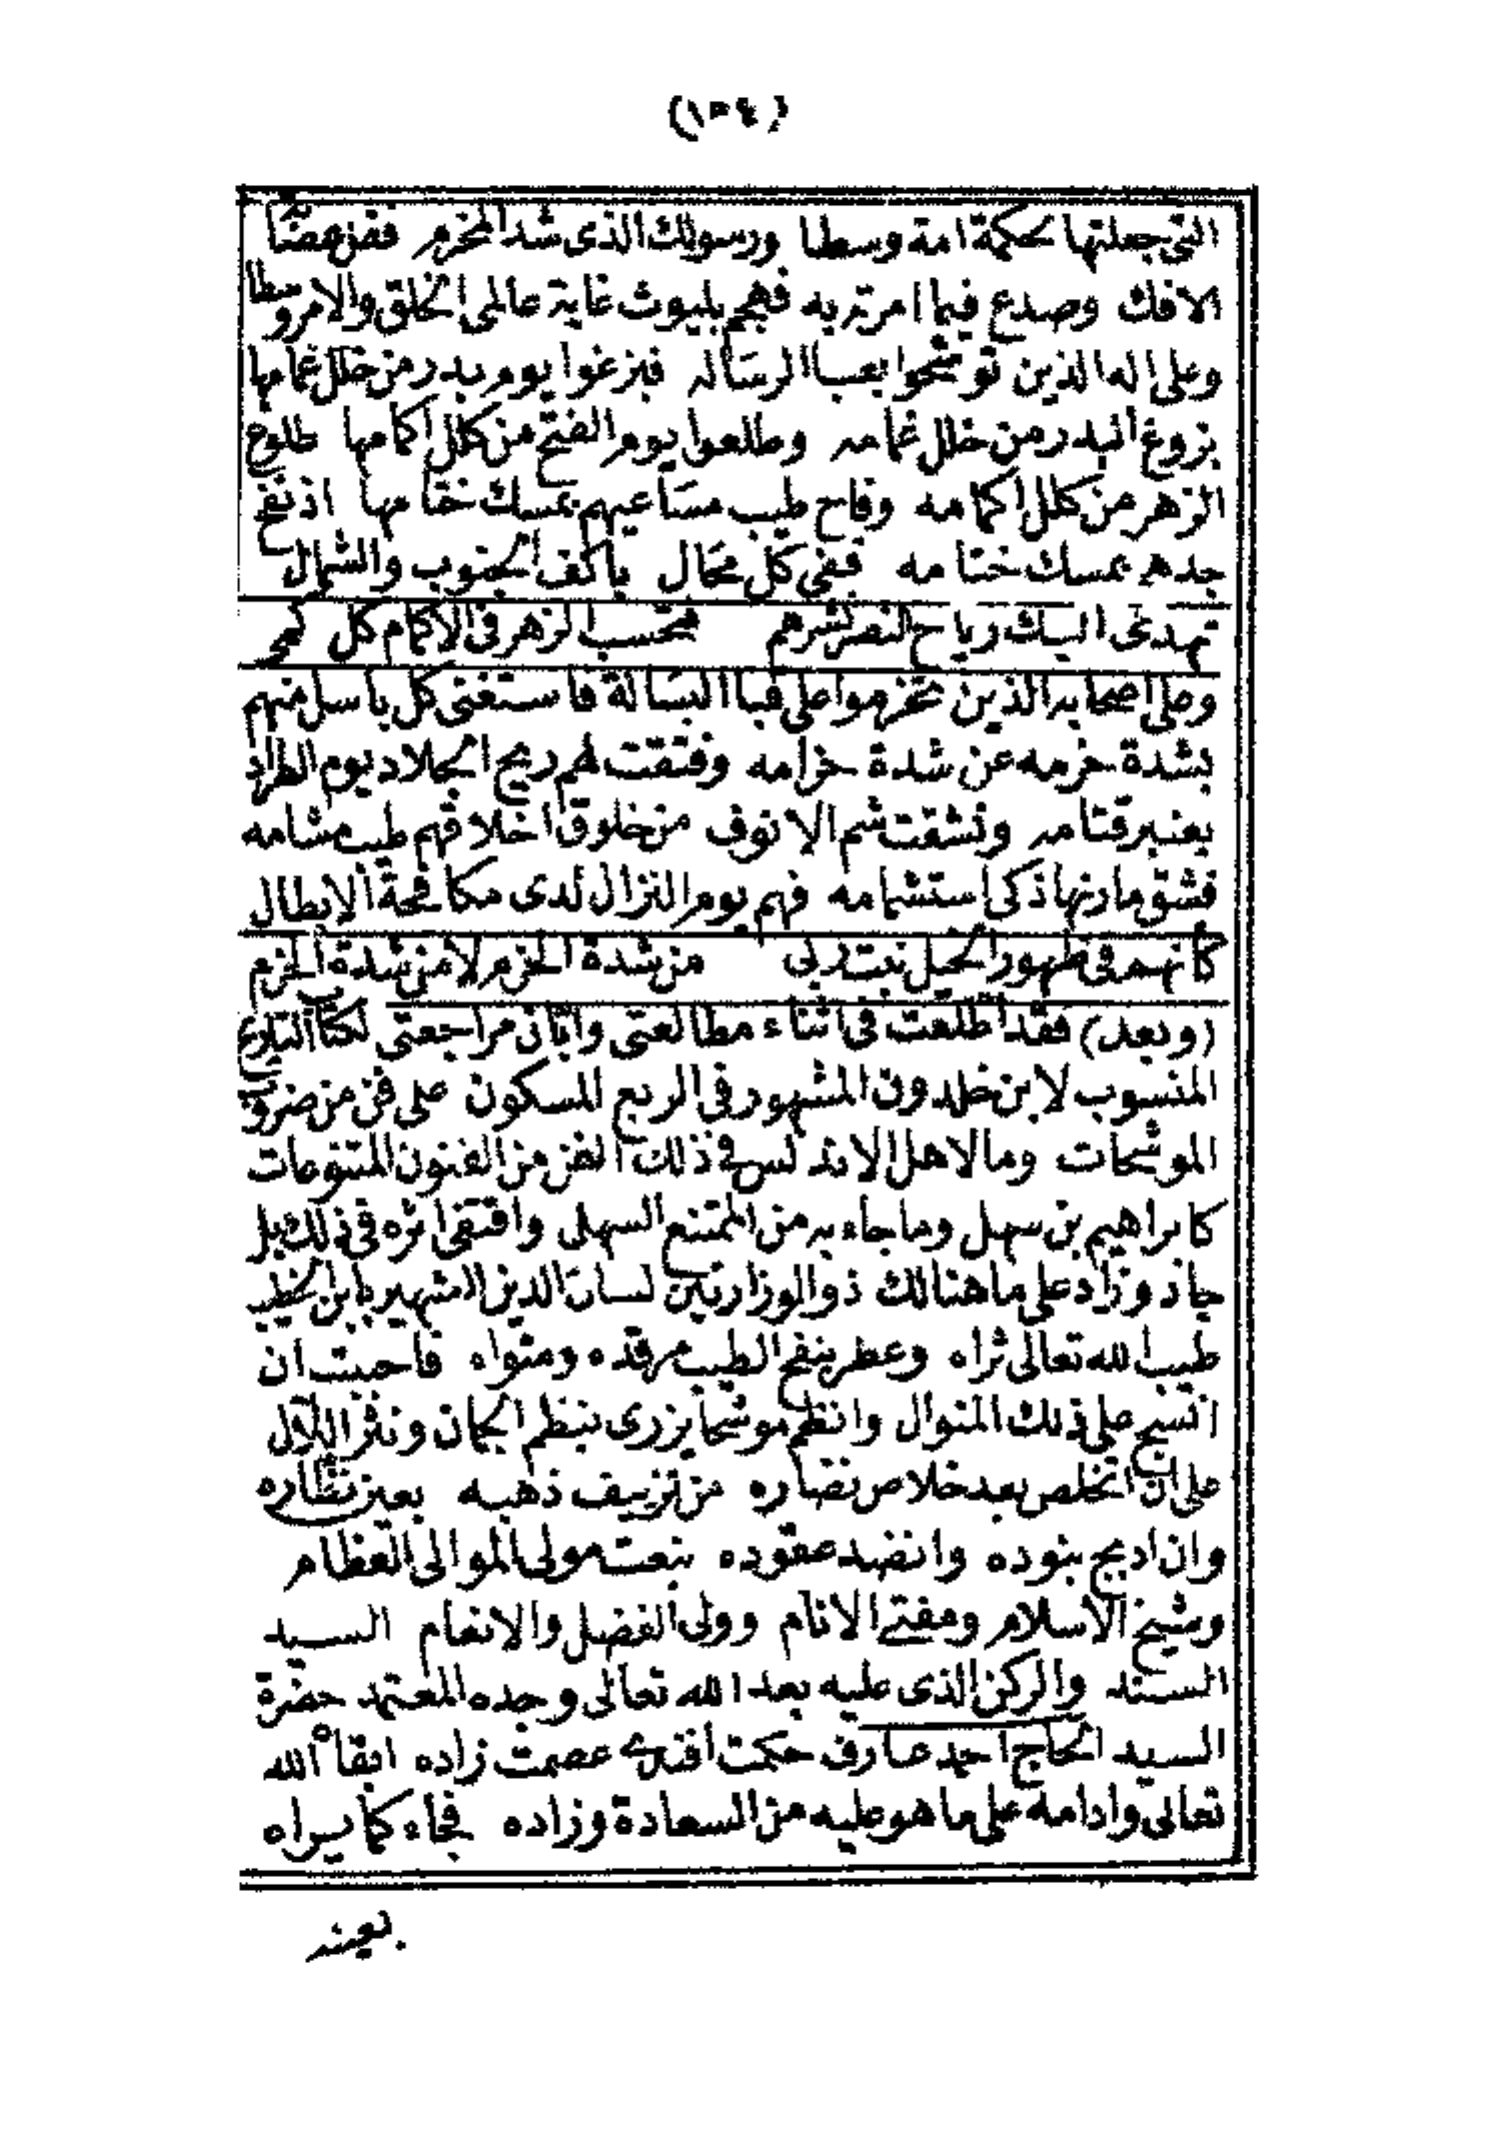 (١٥٤)
التى جعلتها بحكمة امة وسطا ورسولك الذى شد المخزم ففض عصا
الافك وصدع فيما امرته به فهجم بليوث غاية عالمى الخلق والامر وسطا
وعلى اله الذين توشحوا بعبا الرساله فبزغوا يوم بدر من خلل غمامها
بزوغ البدر من خلل غمامه وطلعوا يوم الفتح من كلل اكمامها طلوع
الزهر من كلل اكمامه وفاح طيب مساعيهم بمسك ختامها اذ نفح
جدهم بمسك ختامه ففى كل مجال باكف الجنوب والشمال
تهدى اليك رياح النصر نشرهم فتحسب الزهر فى الاكمام كل كمى
وعلى اصحابه الذين تحزموا على قبا البسالة فاستغنى كل باسل منهم
بشدة حزمه عن شدة حزامه وفتقت لهم ريح الجلاد يوم الطراد
بعنبر قتامه ونشقت شم الانوف من خلوق اخلاقهم طيب مشامه
فشق مارنها ذكى استشمامه فهم يوم النزال لدى مكافحة الابطال
كأنهم فى ظهور الخيل نبت ربى من شدة الحزم لا من شدة الحزم
(وبعد) فقد اطلعت فى اثناء مطالعتى وابان مراجعتى لكتاب التاريخ
المنسوب لابن خلدون المشهور فى الربع المسكون على فن من ضروب
الموشحات وما لاهل الاندلس فى ذلك الفن من الفنون المتنوعات
كابراهيم بن سهل وما جاء به من الممتنع السهل واقتفى اثره فى ذلك بل
جاز وزاد على ما هنالك ذو الوزارتين لسان الدين الشهير بابن الخطيب
طيب الله تعالى ثراه وعطر بنفح الطيب مرقده ومثواه فاحببت ان
انسج على ذلك المنوال وانظم موشحا يزرى بنظم الجمان ونثر اللآل
على ان اتخلص بعد خلاص نضاره من تزييف ذهبه بعين نظاره
وان ادبج بنوده وانضد عقوده بنعت مولى الموالى العظام
وشيخ الاسلام ومفتى الانام وولى الفضل والانعام السيد
السند والركن الذى عليه بعد الله تعالى وجده المعتمد حضرة
السيد الحاج احمد عارف حكمت افندى عصمت زاده ابقاه الله
تعالى وادامه على ما هو عليه من السعادة وزاده فجاء كما يراه
بعينه